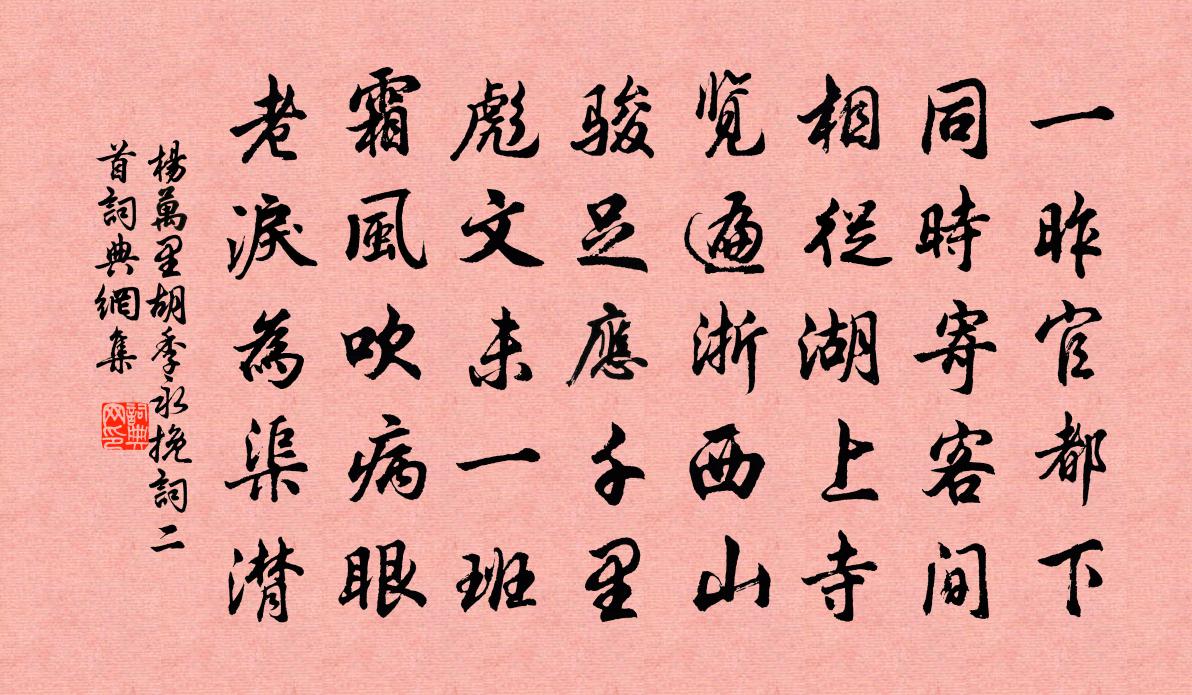 一昨官都下
同時寄客間
相從湖上寺
览遍浙西山
骏足應千里
彪文未一班
霜風吹病眼
老淚為渠潸
楊萬里胡季永挽詞二
首詞典網集
詞典
网印